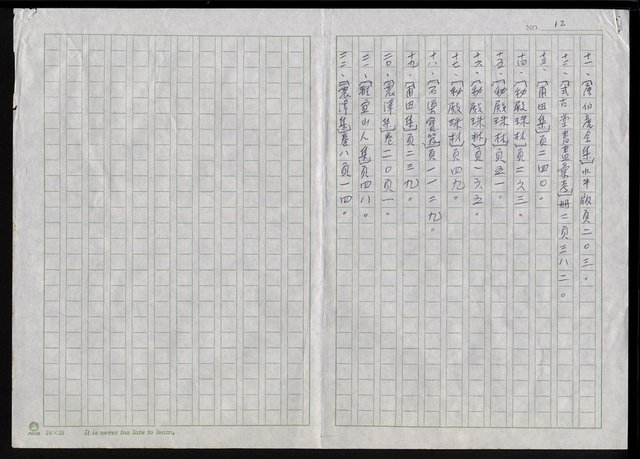 NO. 12
十一、【唐伯虎全集】水牛版頁二〇三。
十二、【式古堂書畫彙考】冊二頁三八二。
十三、【甫田集】頁二四〇。
十四、【秘殿珠林】頁二六三。
十五、【秘殿珠林】頁五一。
十六、【秘殿珠林】頁一六五。
十七、【秘殿珠林】頁四九。
十八、【石渠寶笈】頁一一二九。
十九、【甫田集】頁二三九。
二〇、【震澤集】卷二〇頁一。
二一、【雅宜山人集】頁四八。
二二、【震澤集】卷八頁一四。
24×25 It is never too late to learn.